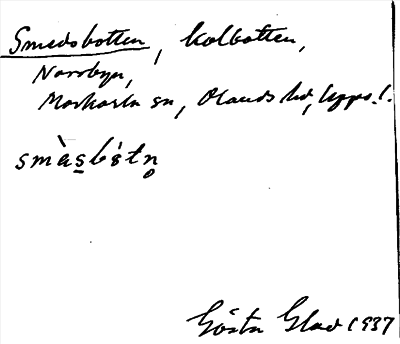 Smedsbotten, kolbotten,
Norrbyn,
Morkarla sn, Olands hd, Upps. l.
smàsbótn̥
Gösta Glad 1937